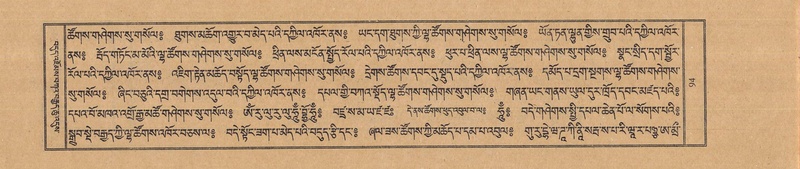 ཚོགས་གཤེགས་སུ་གསོལ༔ ཐུགས་མཆོག་འགྱུར་བ་མེད་པའི་དཀྱིལ་འཁོར་ནས༔ ཡང་དག་ཐུགས་ཀྱི་ལྷ་ཚོགས་གཤེགས་སུ་གསོལ༔ ཡོན་ཏན་ལྷུན་གྱིས་གྲུབ་པའི་དཀྱིལ་འཁོར་
ནས༔ རྦོད་གཏོང་མ་མོའི་ལྷ་ཚོགས་གཤེགས་སུ་གསོལ༔ ཕྲིན་ལས་མངོན་སྤྱོད་རོལ་པའི་དཀྱིལ་འཁོར་ནས༔ ཕུར་པ་ཕྲིན་ལས་ལྷ་ཚོགས་གཤེགས་སུ་གསོལ༔ སྣང་སྲིད་དག་སྦྱོར་
རོལ་པའི་དཀྱིལ་འཁོར་ནས༔ འཇིག་རྟེན་མཆོད་བསྟོད་ལྷ་ཚོགས་གཤེགས་སུ་གསོལ༔ དྲེགས་ཚོགས་དབང་དུ་སྡུད་པའི་དཀྱིལ་འཁོར་ནས༔ དམོད་པ་དྲག་སྔགས་ལྷ་ཚོགས་གཤེགས་
སུ་གསོལ༔ ཞིང་བཅུའི་དགྲ་བགེགས་འདུལ་བའི་དཀྱིལ་འཁོར་ནས༔ དཔལ་གྱི་བཀའ་སྡོད་ལྷ་ཚོགས་གཤེགས་སུ་གསོལ༔ གཞན་ཡང་གནས་ཡུལ་དུར་ཁྲོད་དབང་མཛད་པའི༔
དཔའ་བོ་མཁའ་འགྲོ་རྒྱ་མཚོ་གཤེགས་སུ་གསོལ༔ ཨོཾ་རུ་ལུ་རུ་ལུ་ཧཱུྃ་བྷྱོ་ཧཱུྃ༔ བཛྲ་ས་མ་ཡ་ཛ་ཛཿ དེ་ནས་ཚོགས་ཕུད་འབུལ་བ་ལ༔ ཧཱུྃ༔ བདེ་གཤེགས་སྤྱི་དཔལ་ཆེན་པོ་ལ་སོགས་པའི༔
སྒྲུབ་སྡེ་བརྒྱད་ཀྱི་ལྷ་ཚོགས་འཁོར་བཅས་ལ༔ བདེ་སྟོང་ཟག་པ་མེད་པའི་བདུད་རྩི་དང་༔ ཞལ་ཟས་ཚོགས་ཀྱི་མཆོད་པ་དམ་པ་འབུལ༔